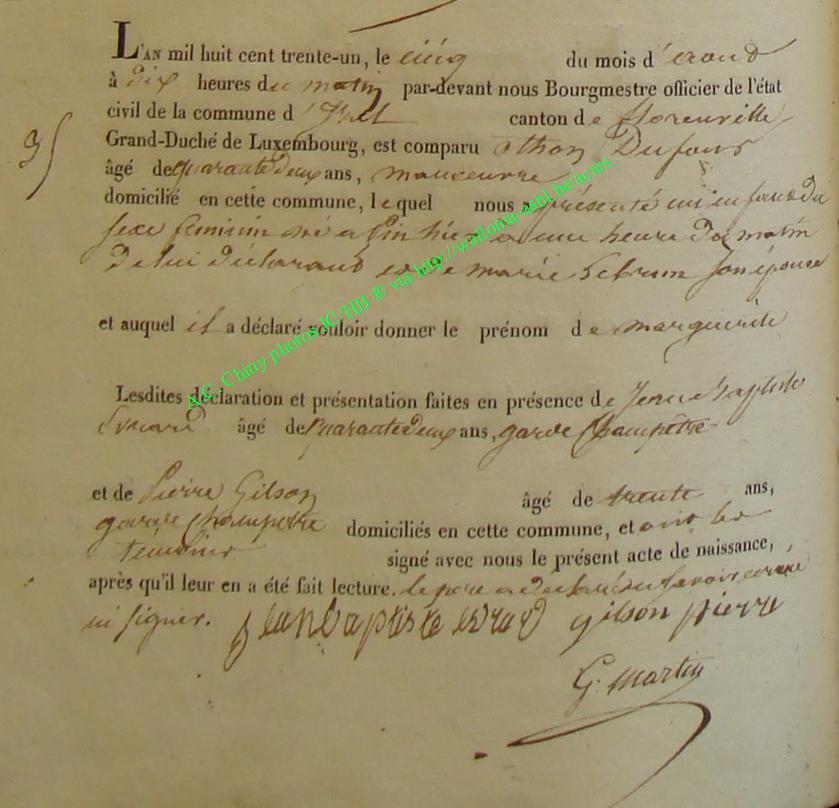 L'AN mil huit cent trente-un, le cinq du mois d'
à dix heures du matin par-devant nous Bourgmestre officier de l'état
civil de la commune d' canton de florenville
35
Grand-Duché de Luxembourg, est comparu othon Dufour
âgé de quarante deux ans, manoeuvre
domicilié en cette commune, lequel nous a présenté un enfant du
sexe feminin né a hier a une heure du matin
de lui déclarant et de marie son épouce
et auquel il a déclaré vouloir donner le prénom de marguerite
Lesdites déclaration et présentation faites en présence de Jean Baptiste
âgé de quarante deux ans, garde Champêtre
et de Pierre Gilson âgé de trente ans,
garde Champetre domiciliés en cette commune, et ont les
témoins signé avec nous le présent acte de naissance,
après qu'il leur en a été fait lecture. le pere a declaré ne savoir ecrire
ni signer. Jean Baptiste evrard gilson pierre
G. Martin
A.C. Chiny photos JC/HB ® via http://wallonia-asbl.be/actes